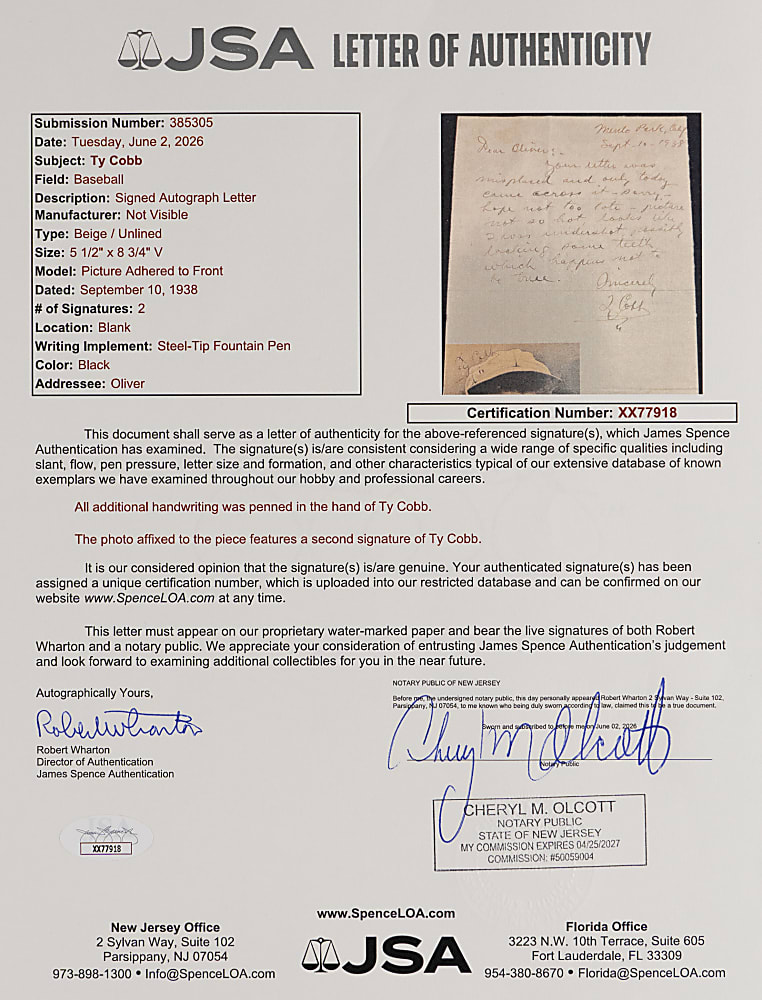 JSA LETTER OF AUTHENTICITY
Submission Number: 385305
Date: Tuesday, June 2, 2026
Subject: Ty Cobb
Field: Baseball
Description: Signed Autograph Letter
Manufacturer: Not Visible
Type: Beige / Unlined
Size: 5 1/2" x 8 3/4" V
Model: Picture Adhered to Front
Dated: September 10, 1938
# of Signatures: 2
Location: Blank
Writing Implement: Steel-Tip Fountain Pen
Color: Black
Addressee: Oliver
Menlo Park, Calif
Sept-10-1938
Dear Oliver:-
Your letter was
misplaced and only today
came across it - sorry -
hope not too late - picture
not so hot looks like
I was undershot possibly
lacking some teeth
which happens not to
be true.
Sincerely
Ty Cobb
Ty Cobb
Certification Number: XX77918
This document shall serve as a letter of authenticity for the above-referenced signature(s), which James Spence
Authentication has examined. The signature(s) is/are consistent considering a wide range of specific qualities including
slant, flow, pen pressure, letter size and formation, and other characteristics typical of our extensive database of known
exemplars we have examined throughout our hobby and professional careers.
All additional handwriting was penned in the hand of Ty Cobb.
The photo affixed to the piece features a second signature of Ty Cobb.
It is our considered opinion that the signature(s) is/are genuine. Your authenticated signature(s) has been
assigned a unique certification number, which is uploaded into our restricted database and can be confirmed on our
website www.SpenceLOA.com at any time.
This letter must appear on our proprietary water-marked paper and bear the live signatures of both Robert
Wharton and a notary public. We appreciate your consideration of entrusting James Spence Authentication's judgement
and look forward to examining additional collectibles for you in the near future.
Autographically Yours,
Robert Wharton
Robert Wharton
Director of Authentication
James Spence Authentication
XX77918
NOTARY PUBLIC OF NEW JERSEY
Before me, the undersigned notary public, this day personally appeared Robert Wharton 2 Sylvan Way - Suite 102,
Parsippany, NJ 07054, to me known who being duly sworn according to law, claimed this to be a true document.
Sworn and subscribed to before me on June 02, 2026
Cheryl M Olcott
Notary Public
CHERYL M. OLCOTT
NOTARY PUBLIC
STATE OF NEW JERSEY
MY COMMISSION EXPIRES 04/25/2027
COMMISSION: #50059004
www.SpenceLOA.com
New Jersey Office
2 Sylvan Way, Suite 102
Parsippany, NJ 07054
973-898-1300 • Info@SpenceLOA.com
JSA
Florida Office
3223 N.W. 10th Terrace, Suite 605
Fort Lauderdale, FL 33309
954-380-8670 • Florida@SpenceLOA.com